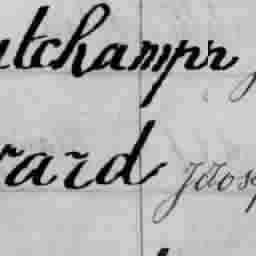 utchamps
rard Jdosp